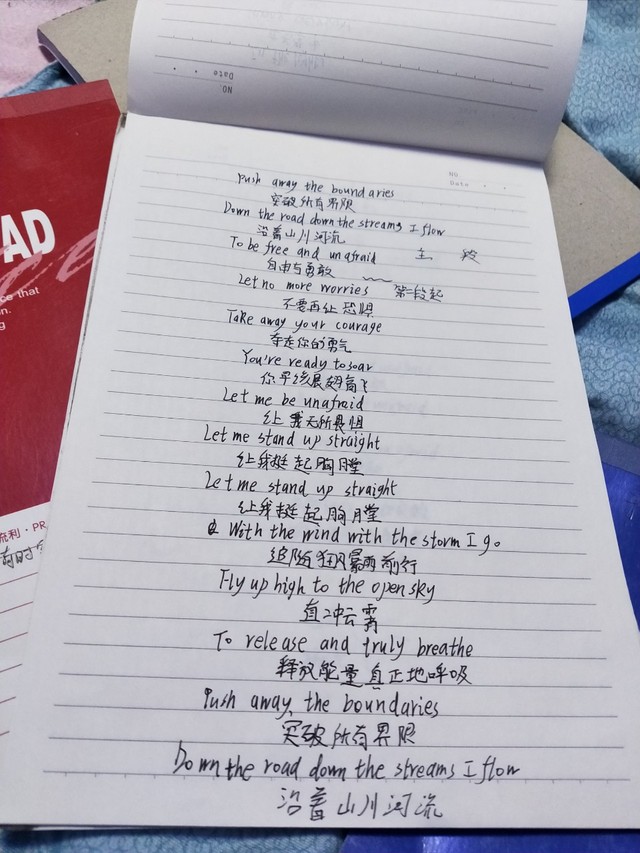 Date
NO
NO
Date
Push away the boundaries
突破所有界限
Down the road down the streams I flow
沿着山川河流
To be free and unafraid 主 段
自由与勇敢
Let no more worries 第二段起
不要再让恐惧
Take away your courage
夺走你的勇气
You're ready to soar
你平线展翅高飞
Let me be unafraid
让我无所畏惧
Let me stand up straight
让我挺起胸膛
Let me stand up straight
让我挺起胸膛
With the wind with the storm I go.
追随狂风暴雨前行
Fly up high to the open sky
直冲云霄
To release and truly breathe
释放能量真正地呼吸
Push away the boundaries
突破所有界限
Down the road down the streams I flow
沿着山川河流
AD
ce that
on.
g
流利·PR